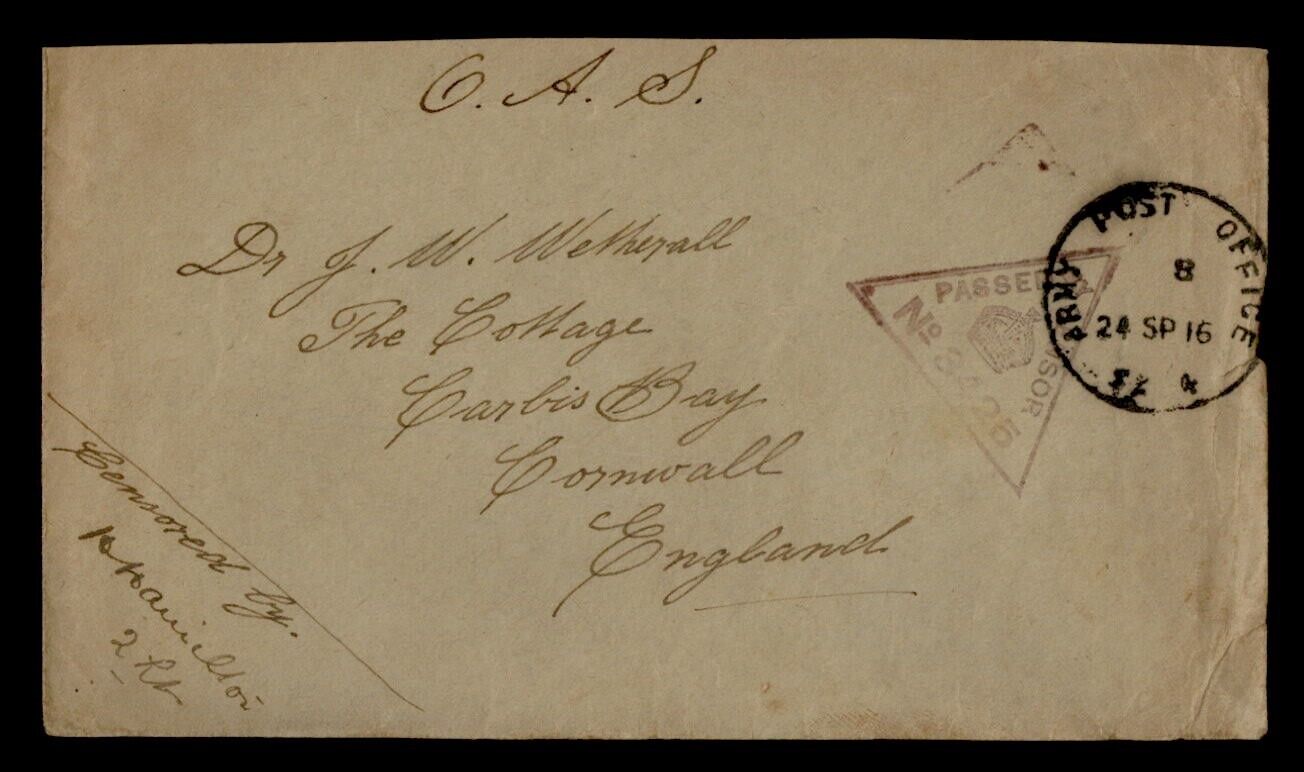 O. A. S.
Dr J. W. Wetherall
The Cottage
Carbis Bay
Cornwall
England
Censored by.
Hamilton
2 Lt
PASSED
No 3425
ARMY POST OFFICE
8
24 SP 16